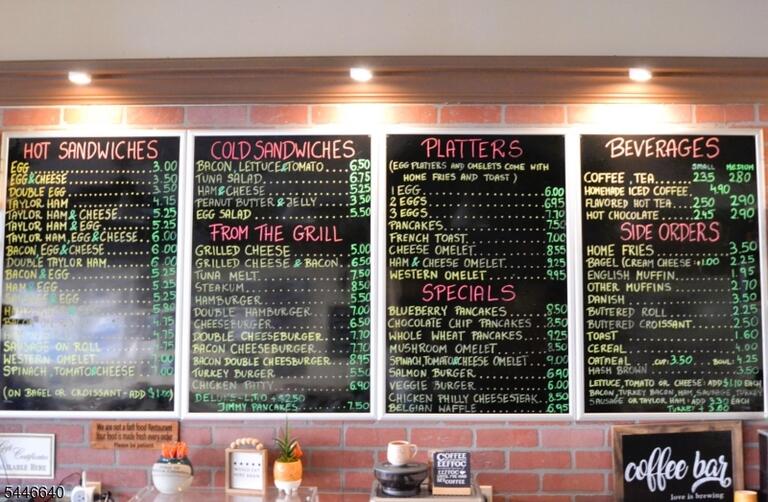 HOT SANDWICHES
EGG 3.00
EGG & CHEESE 3.50
DOUBLE EGG 3.50
TAYLOR HAM 4.75
TAYLOR HAM & CHEESE 5.25
TAYLOR HAM & EGG 5.25
TAYLOR HAM, EGG & CHEESE 6.00
BACON EGG & CHEESE 6.00
DOUBLE TAYLOR HAM 6.00
BACON & EGG 5.25
HAM & EGG 5.25
& EGG 5.25
4.75
4.75
SAUSAGE ON ROLL 4.75
WESTERN OMELET 7.00
SPINACH, TOMATO & CHEESE 7.00
(ON BAGEL OR CROISSANT - ADD $1.00)
COLD SANDWICHES
BACON, LETTUCE & TOMATO 6.50
TUNA SALAD 6.75
HAM & CHEESE 5.25
PEANUT BUTTER & JELLY 3.50
EGG SALAD 5.50
FROM THE GRILL
GRILLED CHEESE 5.00
GRILLED CHEESE & BACON 6.50
TUNA MELT 7.50
STEAKUM 8.50
HAMBURGER 5.50
DOUBLE HAMBURGER 7.00
CHEESEBURGER 6.50
DOUBLE CHEESEBURGER 7.70
BACON CHEESEBURGER 7.70
BACON DOUBLE CHEESBURGER 8.95
TURKEY BURGER 5.50
CHICKEN PATTY 6.90
DELUXE - L,T,O + $2.50
JIMMY PANCAKES 7.50
PLATTERS
(EGG PLATTERS AND OMELETS COME WITH
HOME FRIES AND TOAST)
1 EGG 6.00
2 EGGS 6.95
3 EGGS 7.70
PANCAKES 7.50
FRENCH TOAST 7.00
CHEESE OMELET 8.55
HAM & CHEESE OMELET 9.25
WESTERN OMELET 9.95
SPECIALS
BLUEBERRY PANCAKES 8.50
CHOCOLATE CHIP PANCAKES 8.50
WHOLE WHEAT PANCAKES 9.25
MUSHROOM OMELET 8.50
SPINACH, TOMATO & CHEESE OMELET 9.00
SALMON BURGER 6.90
VEGGIE BURGER 6.00
CHICKEN PHILLY CHEESESTEAK 8.50
BELGIAN WAFFLE 6.95
BEVERAGES
SMALL MEDIUM
COFFEE, TEA 2.35 2.80
HOMEMADE ICED COFFEE 4.90
FLAVORED HOT TEA 2.50 2.90
HOT CHOCOLATE 2.45 2.90
SIDE ORDERS
HOME FRIES 3.50
BAGEL (CREAM CHEESE +1.00) 2.25
ENGLISH MUFFIN 1.95
OTHER MUFFINS 2.70
DANISH 3.50
BUTTERED ROLL 2.25
BUTTERED CROISSANT 2.50
TOAST 1.60
CEREAL 4.00
OATMEAL CUP: 3.50 BOWL: 4.25
HASH BROWN 3.50
LETTUCE, TOMATO OR CHEESE: ADD $1.10 EACH
BACON, TURKEY BACON, HAM, SAUSAGE, TURKEY
SAUSAGE OR TAYLOR HAM: ADD $3.20 EACH
TURKEY + 3.80
We are not a fast food Restaurant
Your food is made fresh every order
Please be patient
Gift Certificates
AVAILABLE HERE
COFFEE
coffee bar
love is brewing
5446640